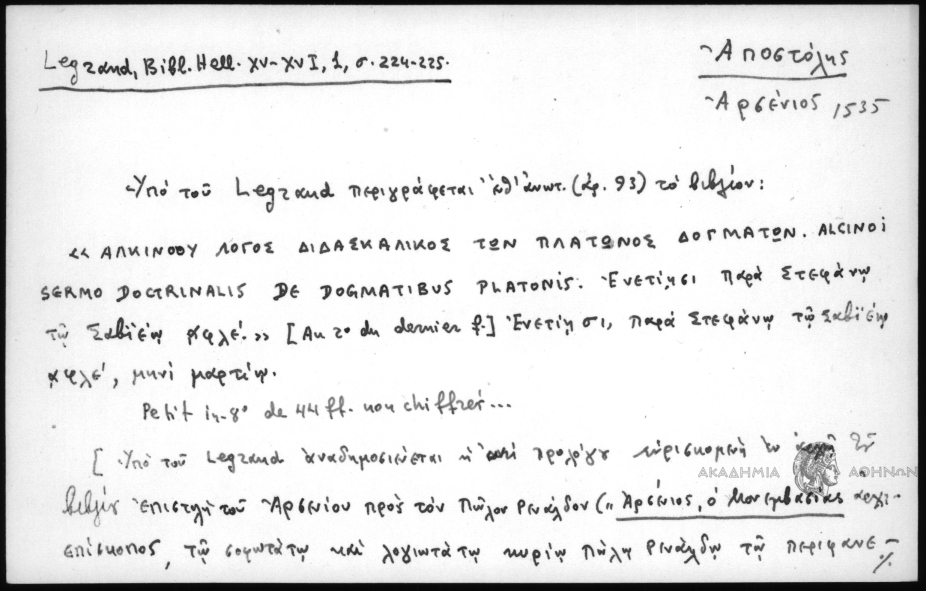 Legrand, Bibl. Hell. XV-XVI, 1, σ. 224-225.
Ἀποστόλης
Ἀρσένιος 1535
Ὑπό τοῦ Legrand περιγράφεται (ἀρ. 93) τό βιβλίον:
« ΑΛΚΙΝΟΟΥ ΛΟΓΟΣ ΔΙΔΑΣΚΑΛΙΚΟΣ ΤΩΝ ΠΛΑΤΩΝΟΣ ΔΟΓΜΑΤΩΝ. ALCINOI
SERMO DOCTRINALIS DE DOGMATIBUS PLATONIS. Ἐνετίησι παρά Στεφάνῳ
τῷ Σαβιέῳ ͵αφλέ.» [Au rº du dernier f.] Ἐνετίησι, παρά Στεφάνῳ τῷ Σαβιέῳ
͵αφλέ, μηνί μαρτίῳ.
Petit in-8º de 44 ff. non chiffrés...
[ Ὑπό τοῦ Legrand ἀναδημοσιεύεται ἡ ἀντί προλόγου εὑρισκομένη ἐν ἀρχῇ τοῦ
ΑΚΑΔΗΜΙΑ ΑΘΗΝΩΝ
βιβλίου ἐπιστολή τοῦ Ἀρσενίου πρός τόν Παῦλον Ρινάλδον („Ἀρσένιος, ὁ Μονεμβασίας ἀρχι-
επίσκοπος, τῷ σοφωτάτῳ καί λογιωτάτῳ κυρίῳ Παύλῳ Ρινάλδῳ τῷ περιφανε-
./.